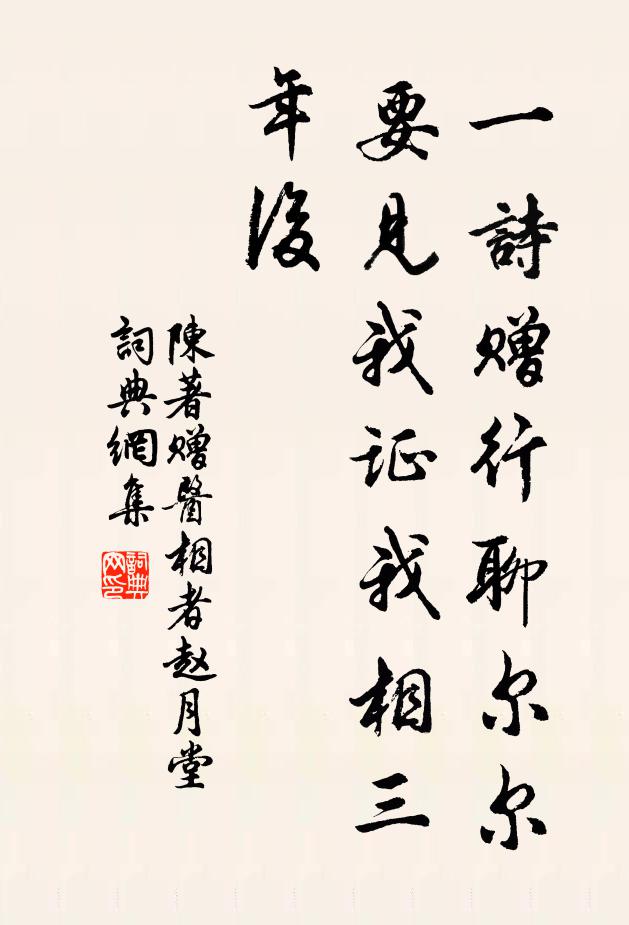 一詩赠行聊尔尔
要見我证我相三
年後
陳著赠醫相者赵月堂
詞典網集
詞典网印